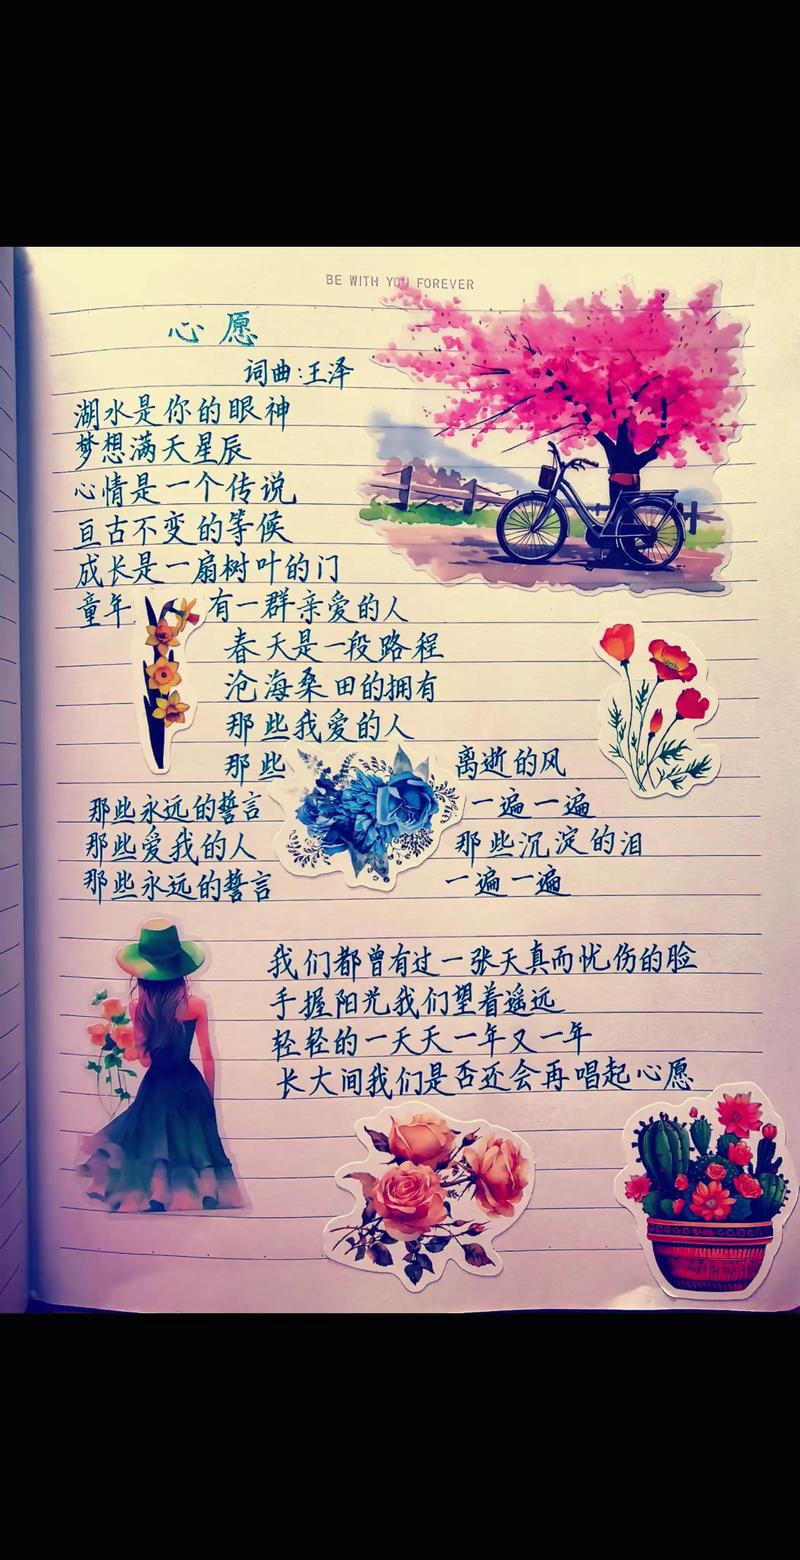 BE WITH YOU FOREVER
心愿
词曲:王泽
湖水是你的眼神
梦想满天星辰
心情是一个传说
亘古不变的等候
成长是一扇树叶的门
童年有一群亲爱的人
春天是一段路程
沧海桑田的拥有
那些我爱的人
那些离逝的风
那些永远的誓言一遍一遍
那些爱我的人那些沉淀的泪
那些永远的誓言一遍一遍
我们都曾有过一张天真而忧伤的脸
手握阳光我们望着遥远
轻轻的一天天一年又一年
长大间我们是否还会再唱起心愿